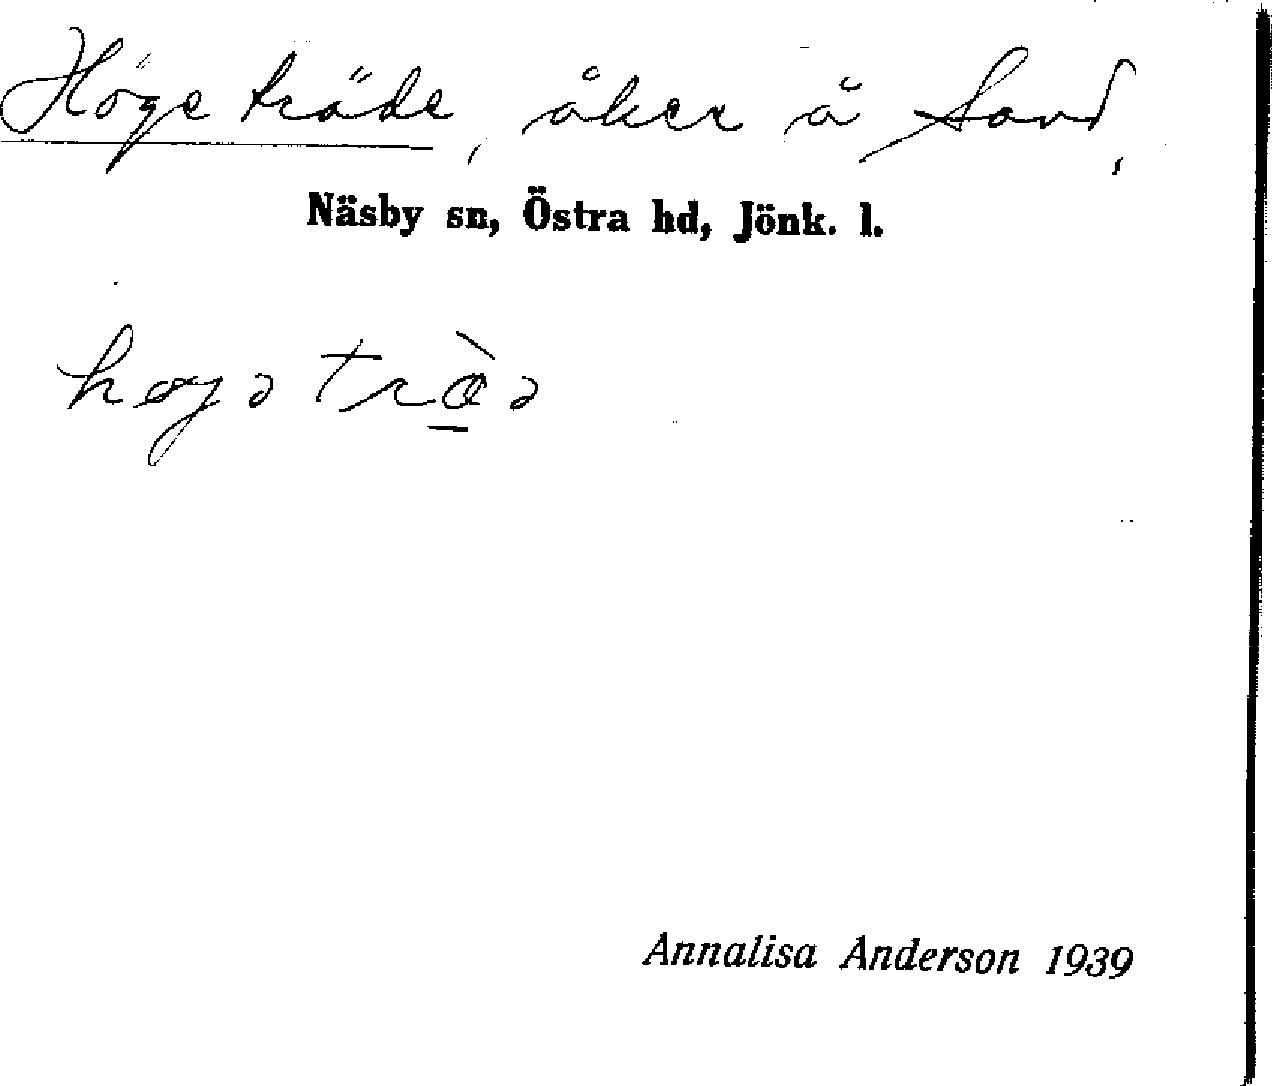 Höge träde, åker å Sand,
Näsby sn, Östra hd, Jönk. l.
høgə træ̀ə
Annalisa Anderson 1939